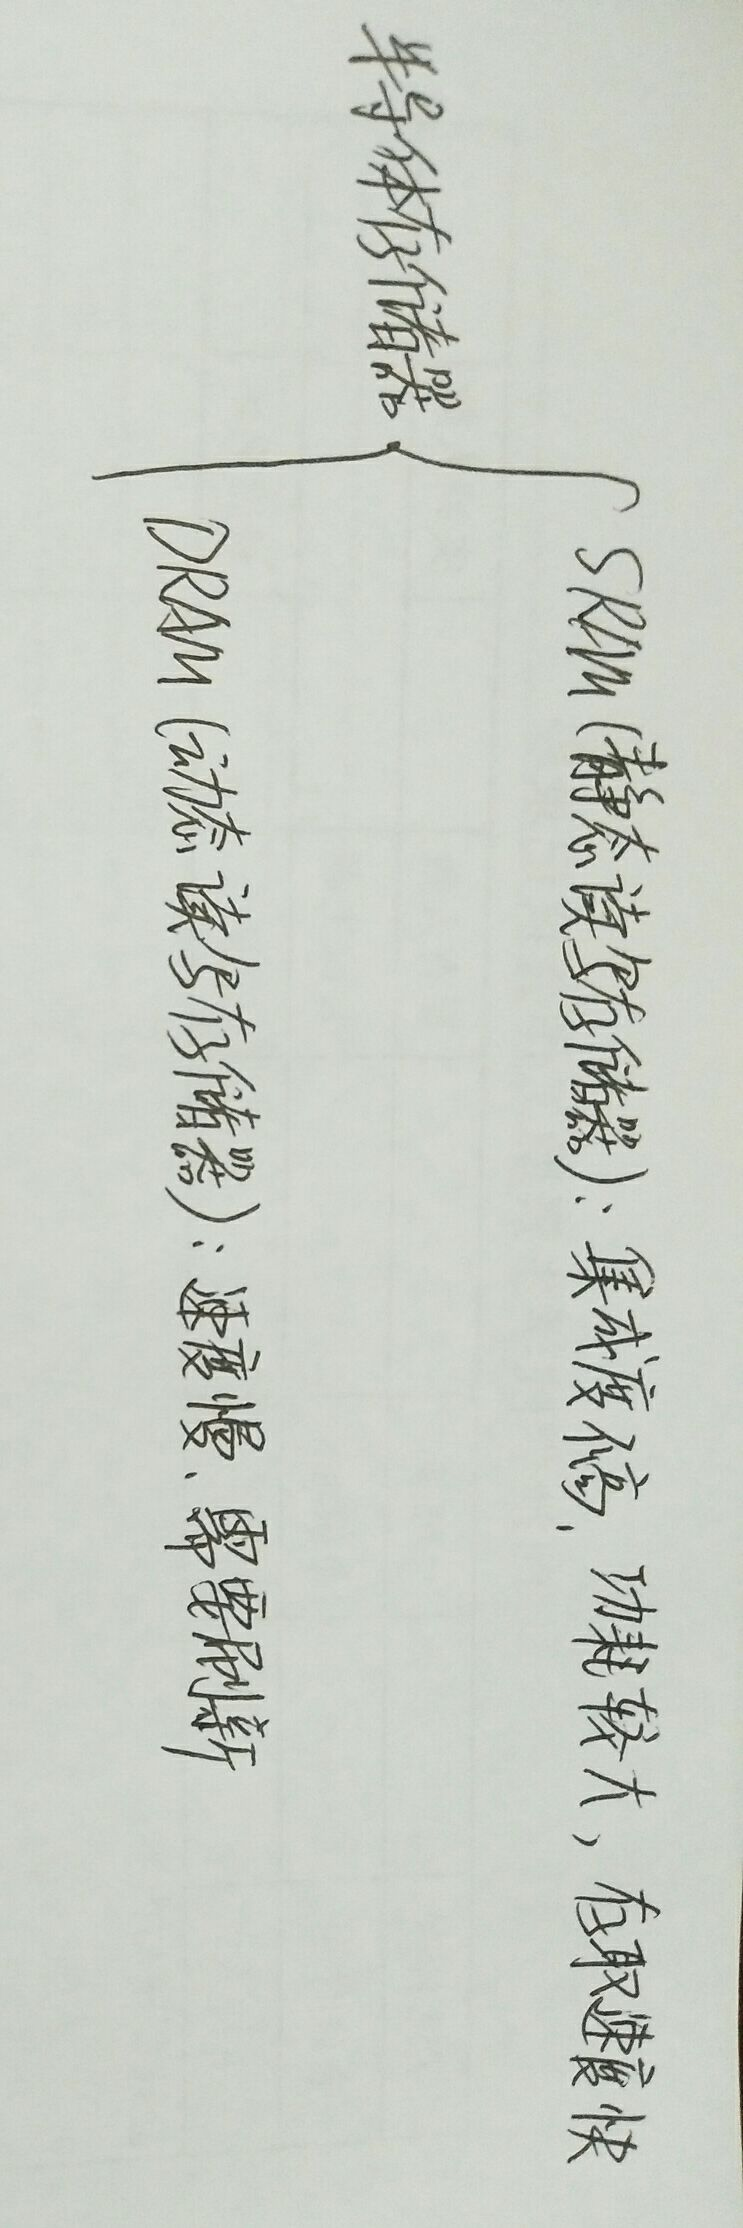 半导体存储器
SRAM(静态读写存储器): 集成度、功耗较大, 存取速度快
DRAM(动态读写存储器): 速度慢、需要刷新